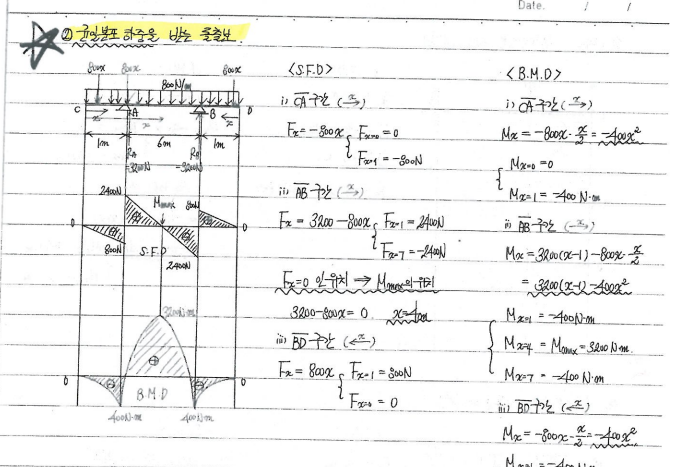 Date. / /
② 균일분포 하중을 받는 돌출보.
800x 800x 800x
800N/m
C A B D
x x x
1m 6m 1m
R_A R_B
=3200N =3200N
2400N Mmax 800N
0 ⊕ ⊕ 0
⊖ ⊖
800N S.F.D
2400N
3200N·m
⊕
0 ⊖ ⊖ 0
B.M.D
400N·m 400N·m
<S.F.D>
i) CA 구간 (x→)
Fx = -800x { Fx=0 = 0
Fx=1 = -800N
ii) AB 구간 (x→)
Fx = 3200 - 800x { Fx=1 = 2400N
Fx=7 = -2400N
Fx=0 인 위치 → Mmax의 위치
3200-800x = 0 x=4m
iii) BD 구간 (←x)
Fx = 800x { Fx=1 = 800N
Fx=0 = 0
<B.M.D>
i) CA 구간 (x→)
Mx = -800x · x/2 = -400x²
{ Mx=0 = 0
Mx=1 = -400 N·m
ii) AB 구간 (x→)
Mx = 3200(x-1) - 800x · x/2
= 3200(x-1) - 400x²
{ Mx=1 = -400N·m
Mx=4 = Mmax = 3200 N·m.
Mx=7 = -400 N·m
iii) BD 구간 (←x)
Mx = -800x · x/2 = -400x²